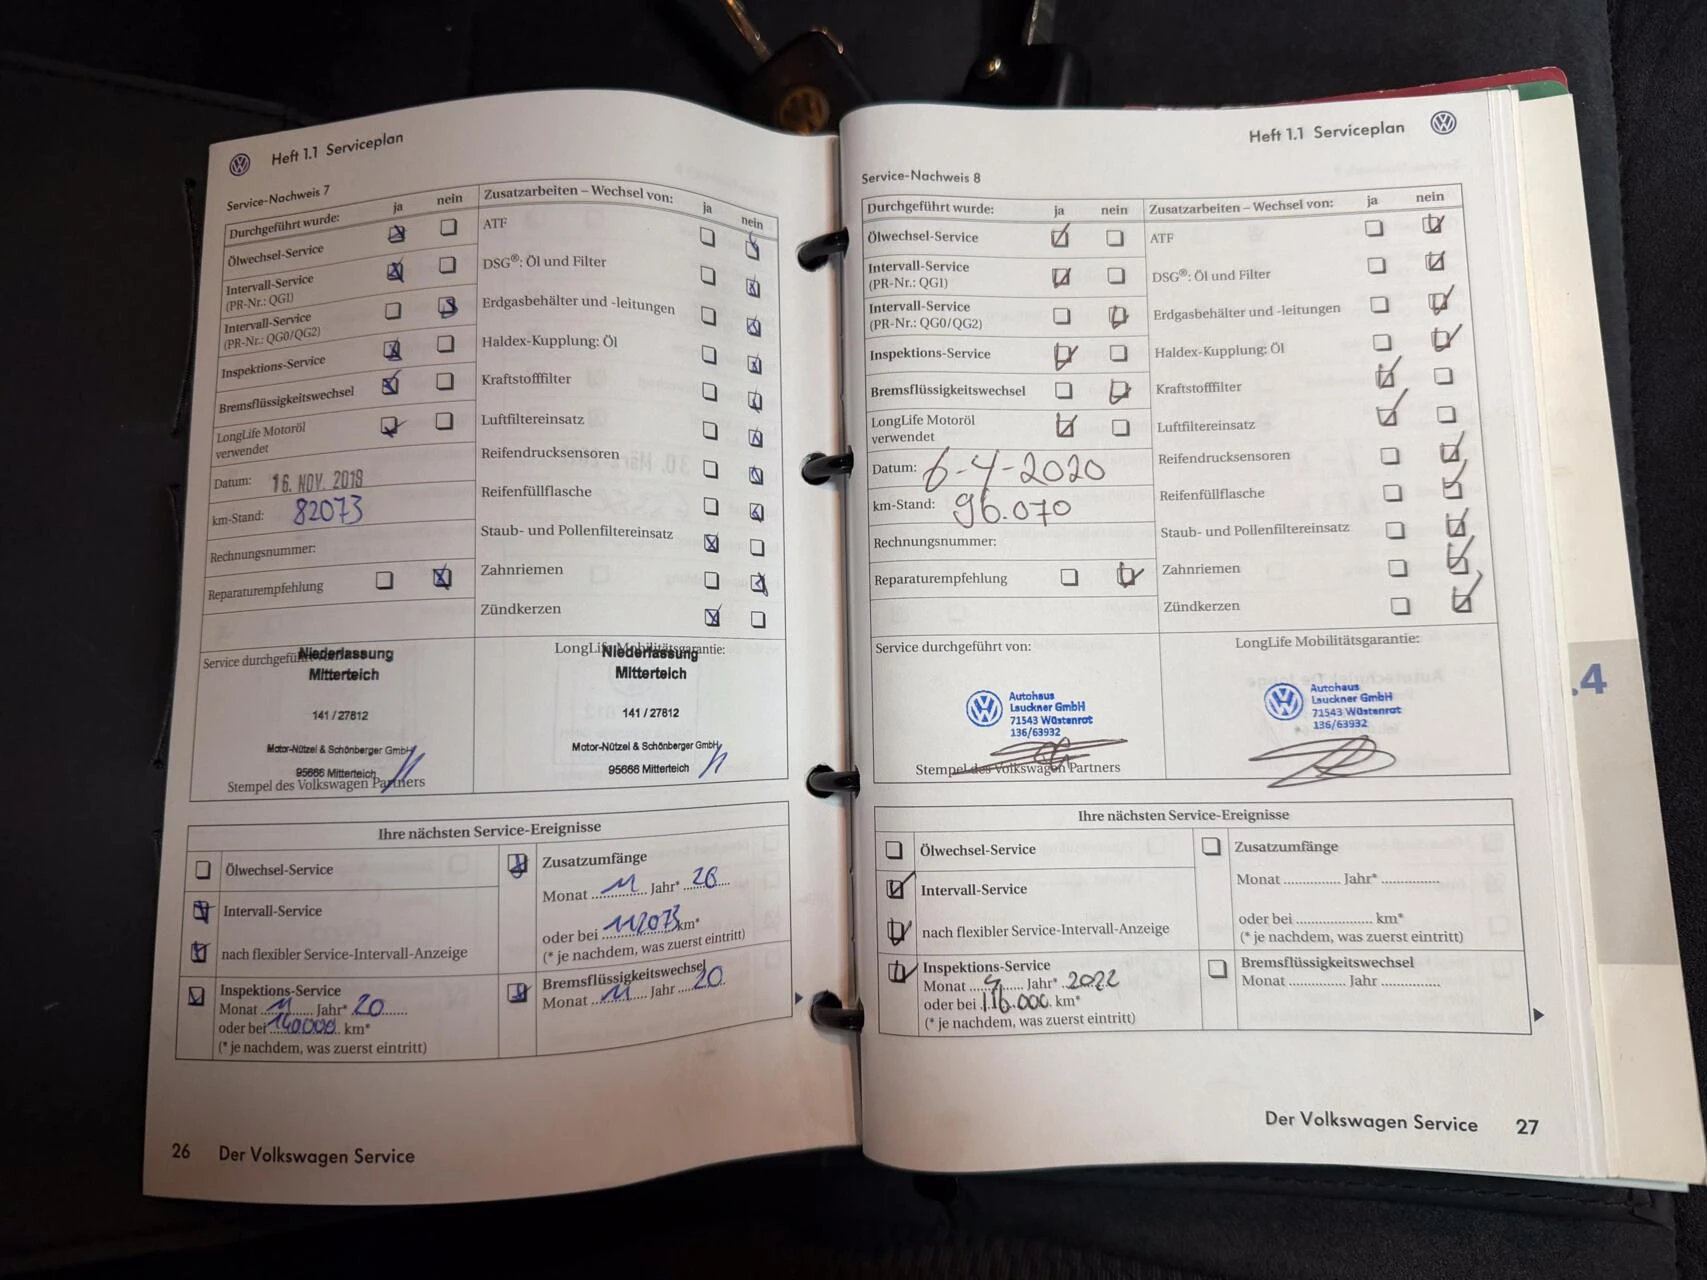 Heft 1.1 Serviceplan
Service-Nachweis 7
Durchgeführt wurde: ja nein
Ölwechsel-Service
Intervall-Service
(PR-Nr.: QG1)
Intervall-Service
(PR-Nr.: QG0/QG2)
Inspektions-Service
Bremsflüssigkeitswechsel
LongLife Motoröl
verwendet
Datum: 16. NOV. 2019
km-Stand: 82073
Rechnungsnummer:
Reparaturempfehlung
Zusatzarbeiten – Wechsel von: ja nein
ATF
DSG®: Öl und Filter
Erdgasbehälter und -leitungen
Haldex-Kupplung: Öl
Kraftstofffilter
Luftfiltereinsatz
Reifendrucksensoren
Reifenfüllflasche
Staub- und Pollenfiltereinsatz
Zahnriemen
Zündkerzen
Service durchgeführt
Niederlassung
Mitterteich
141 / 27812
Motor-Nützel & Schönberger GmbH
95666 Mitterteich
Stempel des Volkswagen Partners
LongLife Mobilitätsgarantie:
Niederlassung
Mitterteich
141 / 27812
Motor-Nützel & Schönberger GmbH
95666 Mitterteich
Ihre nächsten Service-Ereignisse
Ölwechsel-Service
Intervall-Service
nach flexibler Service-Intervall-Anzeige
Inspektions-Service
Monat 11 Jahr* 20
oder bei 140000 km*
(* je nachdem, was zuerst eintritt)
Zusatzumfänge
Monat 11 Jahr* 20
oder bei 112073 km*
(* je nachdem, was zuerst eintritt)
Bremsflüssigkeitswechsel
Monat 11 Jahr 20
26 Der Volkswagen Service
Heft 1.1 Serviceplan
Service-Nachweis 8
Durchgeführt wurde: ja nein
Ölwechsel-Service
Intervall-Service
(PR-Nr.: QG1)
Intervall-Service
(PR-Nr.: QG0/QG2)
Inspektions-Service
Bremsflüssigkeitswechsel
LongLife Motoröl
verwendet
Datum: 6-4-2020
km-Stand: 96.070
Rechnungsnummer:
Reparaturempfehlung
Zusatzarbeiten – Wechsel von: ja nein
ATF
DSG®: Öl und Filter
Erdgasbehälter und -leitungen
Haldex-Kupplung: Öl
Kraftstofffilter
Luftfiltereinsatz
Reifendrucksensoren
Reifenfüllflasche
Staub- und Pollenfiltereinsatz
Zahnriemen
Zündkerzen
Service durchgeführt von:
Autohaus
Lauckner GmbH
71543 Wüstenrot
136/63932
Stempel des Volkswagen Partners
LongLife Mobilitätsgarantie:
Autohaus
Lauckner GmbH
71543 Wüstenrot
136/63932
Ihre nächsten Service-Ereignisse
Ölwechsel-Service
Intervall-Service
nach flexibler Service-Intervall-Anzeige
Inspektions-Service
Monat 4 Jahr* 2022
oder bei 116.000 km*
(* je nachdem, was zuerst eintritt)
Zusatzumfänge
Monat Jahr*
oder bei km*
(* je nachdem, was zuerst eintritt)
Bremsflüssigkeitswechsel
Monat Jahr
Der Volkswagen Service 27
.4